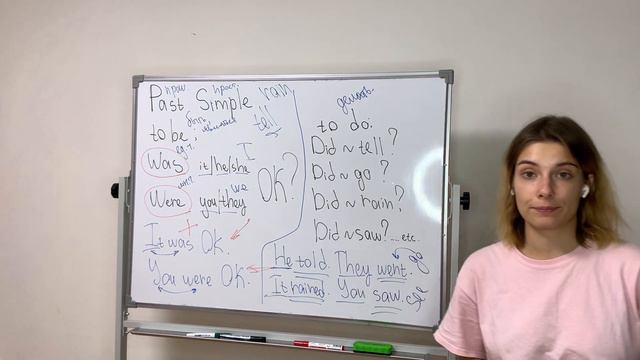 Past Simple
rain
to be;
tell
Was it/he/she I
Were you/they we
OK?
It was OK.
You were OK.
to do:
Did ~ tell?
Did ~ go?
Did ~ rain?
Did ~ saw? ... etc.
He told. They went. go
It rained. You saw.